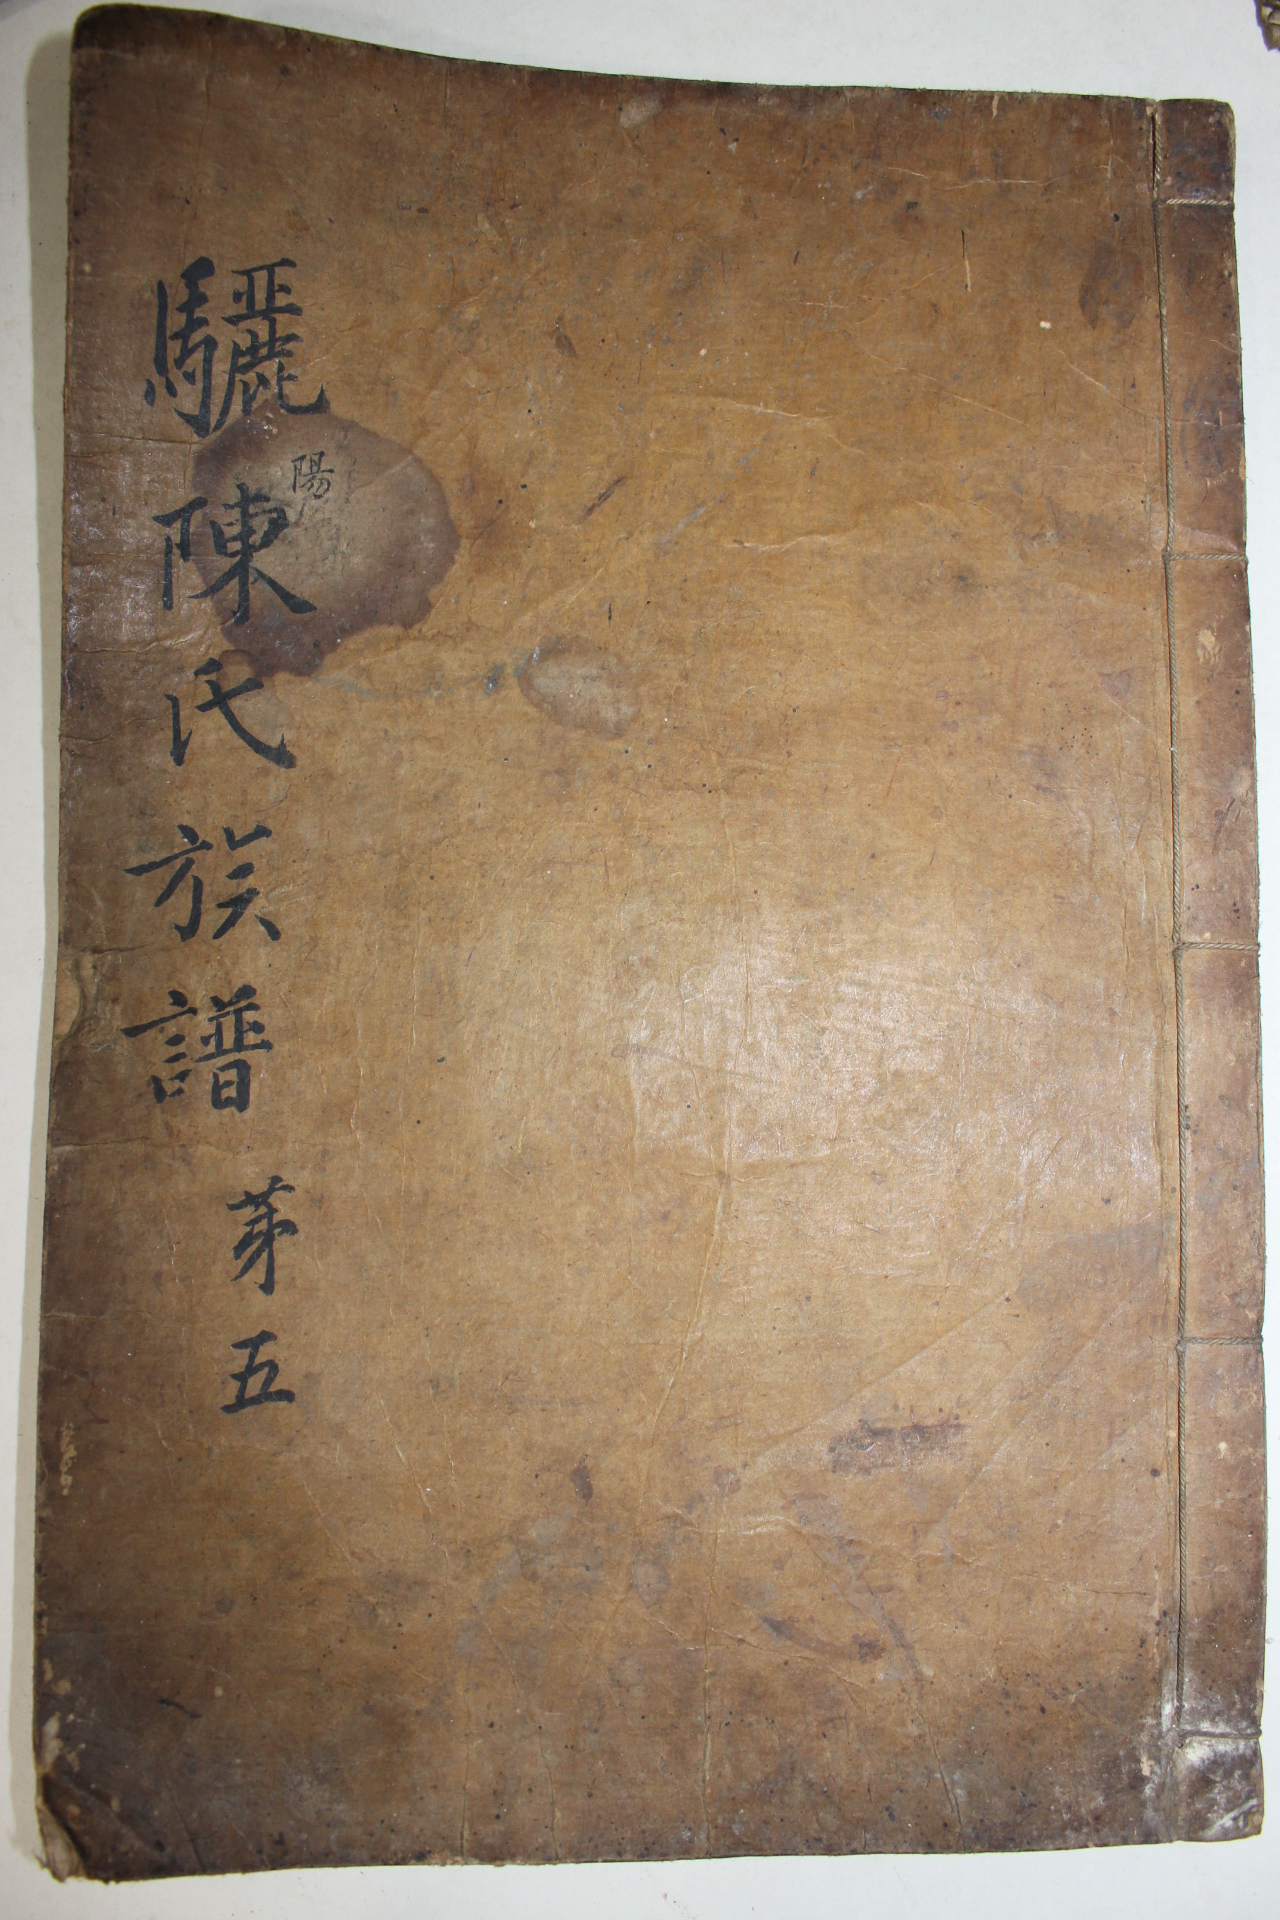 驪陳氏族譜
陽
苐五